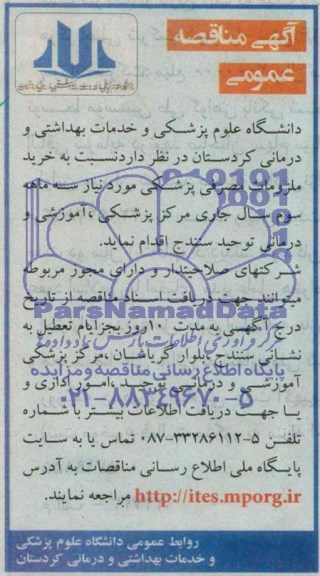 آگهی مناقصه
عمومی
دانشگاه علوم پزشکی و خدمات بهداشتی و
درمانی کردستان در نظر داردنسبت به خرید
ملزومات مصرفی پزشکی مورد نیاز سه ماهه
سوم سال جاری مرکز پزشکی ،آموزشی و
درمانی توحید سنندج اقدام نماید.
شرکتهای صلاحیتدار و دارای مجوز مربوطه
میتوانند جهت دریافت اسناد مناقصه از تاریخ
ParsNamadData
درج آگهی به مدت ۱۰روز بجزایام تعطیل به
نشانی سنندج ،بلوار گریاشان ،مرکز پزشکی
پایگاه اطلاع رسانی مناقصه و مزایده
آموزشی و درمانی توحید ،امور اداری و
۰۲۱-۸۸۳۴۹۶۷۰-۵
یا جهت دریافت اطلاعات بیشتر با شماره
تلفن ۵-۰۸۷-۳۳۲۸۶۱۱۲ تماس یا به سایت
پایگاه ملی اطلاع رسانی مناقصات به آدرس
http://ites.mporg.ir مراجعه نمایند.
روابط عمومی دانشگاه علوم پزشکی
و خدمات بهداشتی و درمانی کردستان